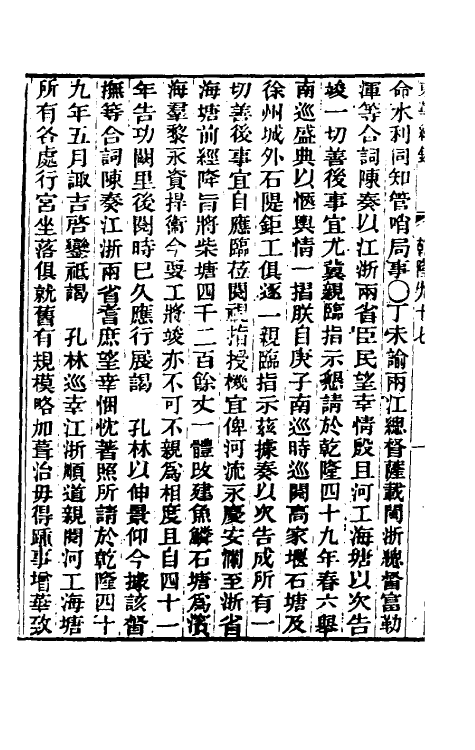 乾隆九十七
命水利同知管哨局事〇丁未諭兩江總督薩載閩浙總督富勒
渾等合詞陳奏以江浙兩省臣民望幸情殷且河工海塘以次告
竣一切善後事宜尤冀親臨指示懇請於乾隆四十九年春六舉
南巡盛典以愜輿情一摺朕自庚子南巡時巡閱高家堰石塘及
徐州城外石隄鉅工俱逐一親臨指示茲據奏以次告成所有一
切善後事宜自應臨莅閱視指授機宜俾河流永慶安瀾至浙省
海塘前經降旨將柴塘四千二百餘丈一體改建魚鱗石塘為濱
海羣黎永資捍衛今要工將竣亦不可不親為相度且自四十一
年告功闕里後閱時已久應行展謁　孔林以伸景仰今據該督
撫等合詞陳奏江浙兩省耆庶望幸悃忱著照所請於乾隆四十
九年五月諏吉啓鑾祗謁　孔林巡幸江浙順道親閱河工海塘
所有各處行宮坐落俱就舊有規模略加葺治毋得踵事增華致